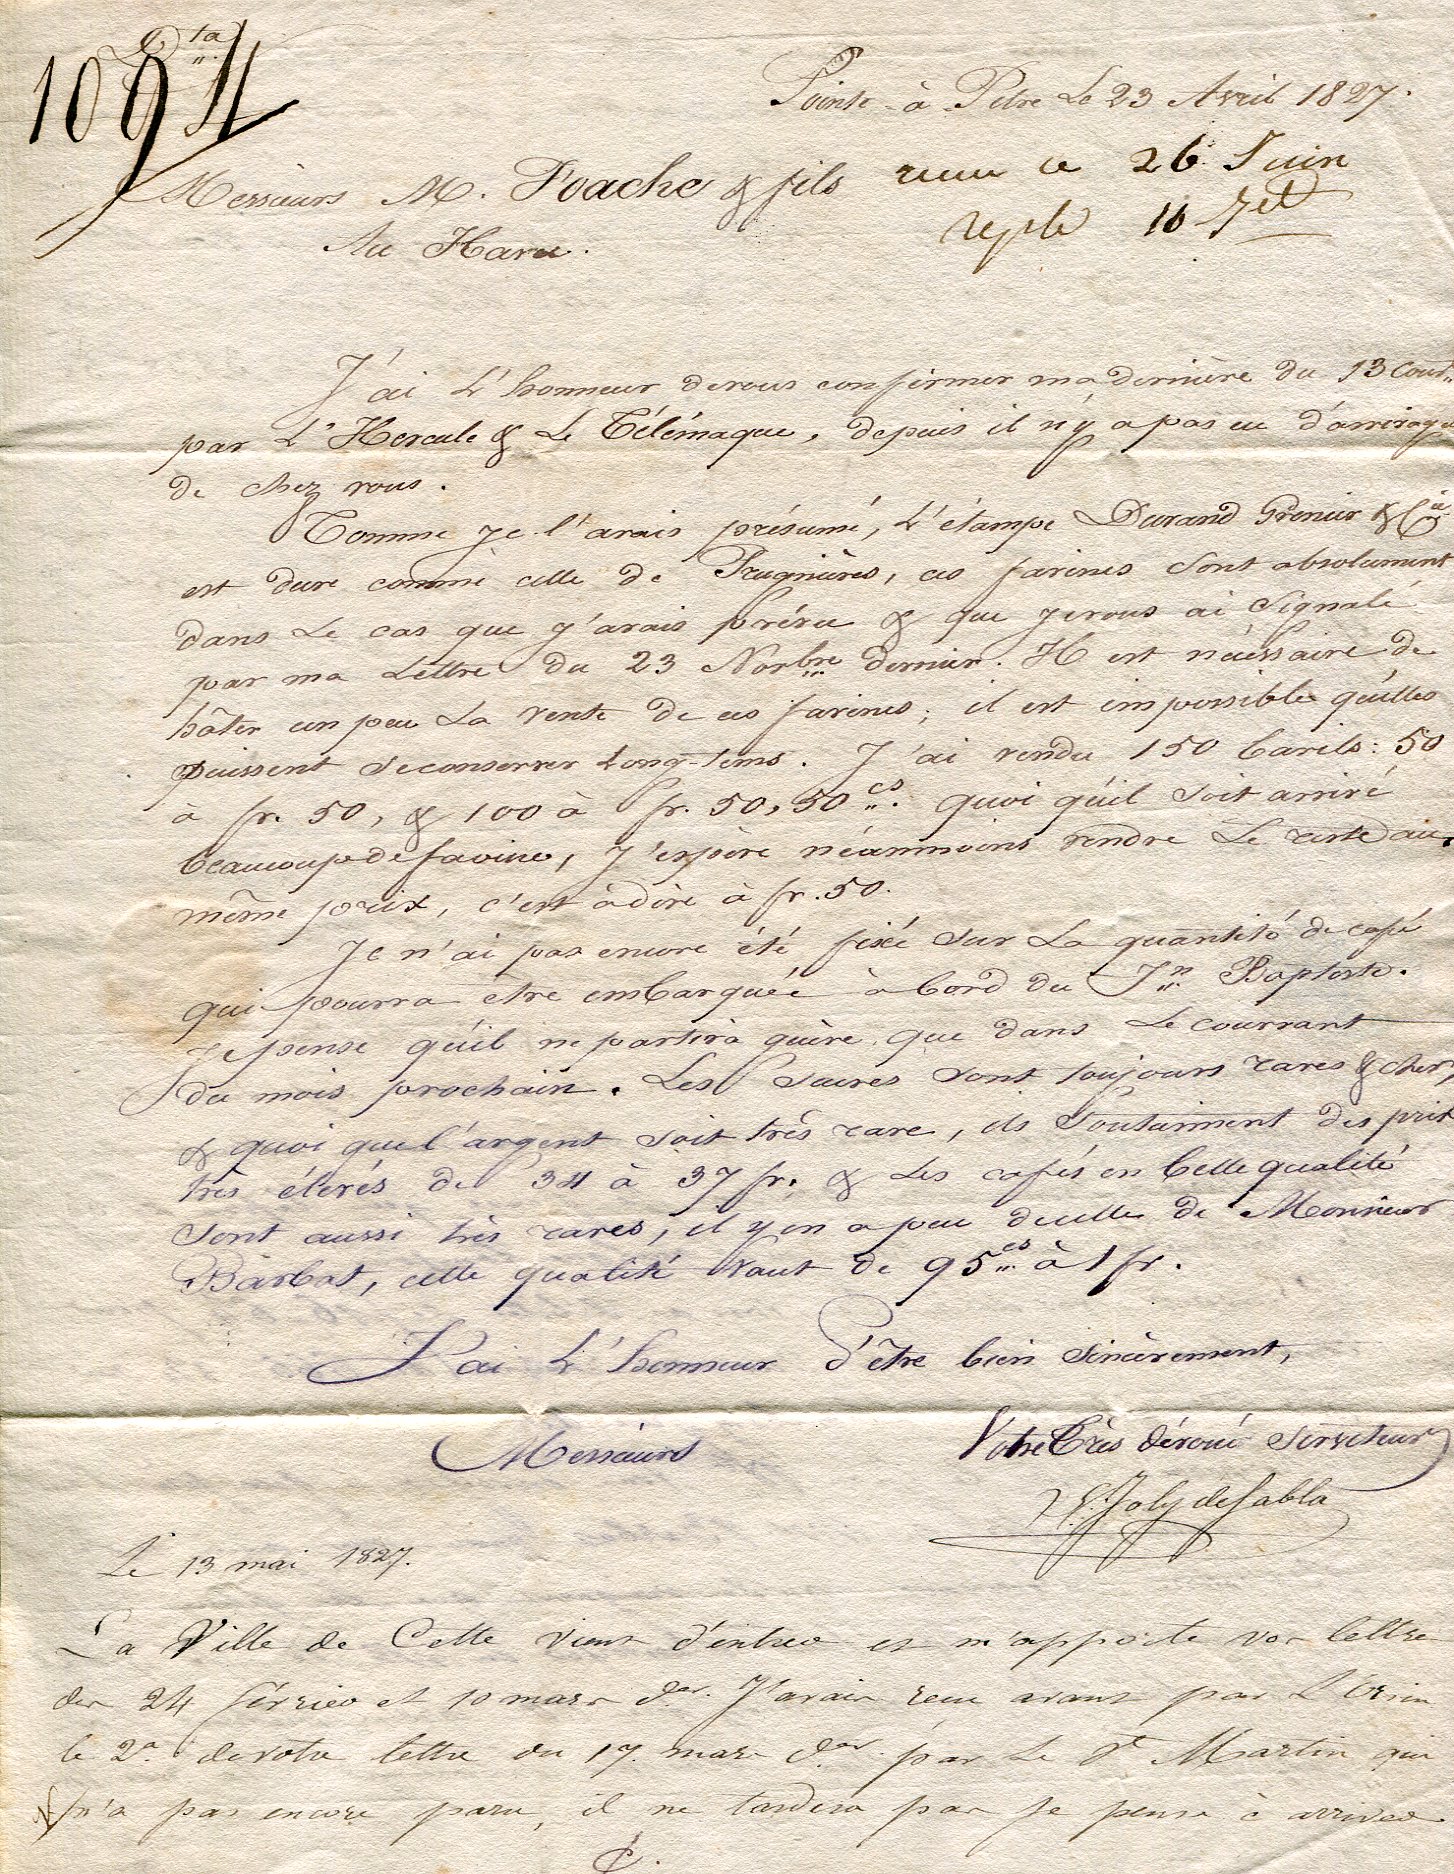 1094
Pointe-à-Pitre Le 23 Avril 1827.
Messieurs M. Foache & fils
recue ce 26 Juin
Au Havre.
10 Jet
J'ai L'honneur devous confirmer ma dernière du 13 Court
par L'Hercule & Le Télémaque, depuis il n'y a pas eu d'arrivage
de chez vous.
Comme je l'avais présumé, L'étampe Durand Grenier & Cie
est dure comme celle de Prugnières, ces farines sont absolument
dans Le cas que j'avais prévu & que jevous ai signalé
par ma Lettre du 23 Novbre dernier. Il est nécessaire de
hâter un peu La vente de ces farines; il est impossible qu'elles
puissent seconserver Long-tems. J'ai vendu 150 barils: 50
à fr. 50, & 100 à fr. 50,50cs. quoi qu'il soit arrivé
beaucoup de farine, j'espère néanmoins vendre Le reste au
même prix, c'est àdire à fr. 50.
Je n'ai pas encore été fixé sur La quantité de café
qui pourra être embarquée à bord du Jn Baptiste.
Je pense qu'il ne partira guère que dans Le courrant
du mois prochain. Les Sucres sont toujours rares & chers,
& quoi que l'argent soit très rare, ils soutiennent des prix
très élevés de 34 à 37 fr. & Les cafés en belle qualité
sont aussi très rares, il y en a peu decelle de Monsieur
Barbat, cette qualité vaut de 95cs à 1 fr.
J'ai L'honneur d'être bien sincèrement,
Messieurs
Votre très dévoué serviteur
Joly deSabla
Le 13 mai 1827.
La Ville de Cette vient d'entrer et m'apporte vos lettres
des 24 février et 10 mars der. J'avais recu avant par L'
le 2a devotre lettre du 17 mars der par Le St Martin qui
n'a pas encore paru, il ne tardera pas je pense à arriver